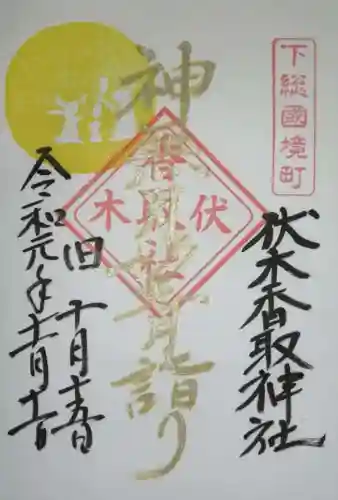 下総國境町
伏木香取神社
神
月詣り
伏木
香取社
旧十月十五日
令和元年十一月十一日